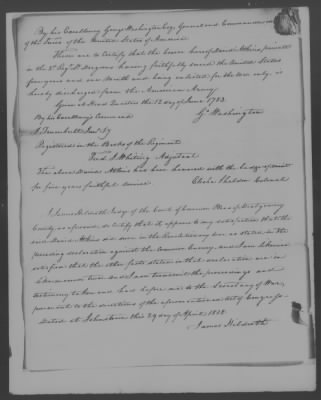 By his Excellency George Washington Esq General and Commander in
of the Forces of the United States of America
These are to certify that the bearer hereof David Atkins private
in the 2d Regt Lt Dragoons having faithfully served the United States
four years and one Month and being enlisted for the war only, is
hereby discharged from the American Army
Given at Head Quarters the 12 day of June 1783
By his Excellency's Command Go Washington
J Trumbull Junr Sy
Registered in the Books of the Regiment
Fred J Whiting Adjutant
The above David Atkins has been honored with the badge of merit
for four years faithful service Elisha Sheldon Colonel
I James Hildreth Judge of the Court of Common Pleas of Montgomery
County, as aforesaid, do certify that it appears to my satisfaction that the
said David Atkins did serve in the Revolutionary war, as stated in the
preceding declaration against the common Enemy, and I am likewise
satisfied that the other facts stated in that declaration are in
like manner true. And I now transmit the proceedings and
testimony taken and had before me to the Secretary of War,
pursuant to the directions of the aforementioned act of Congress
Dated at Johnstown this 29 day of April 1818
James Hildreth